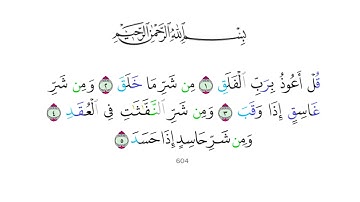 بِسْمِ ٱللَّهِ ٱلرَّحْمَٰنِ ٱلرَّحِيمِ
قُلْ أَعُوذُ بِرَبِّ ٱلْفَلَقِ ١ مِن شَرِّ مَا خَلَقَ ٢ وَمِن شَرِّ
غَاسِقٍ إِذَا وَقَبَ ٣ وَمِن شَرِّ ٱلنَّفَّٰثَٰتِ فِى ٱلْعُقَدِ ٤
وَمِن شَرِّ حَاسِدٍ إِذَا حَسَدَ ٥
604